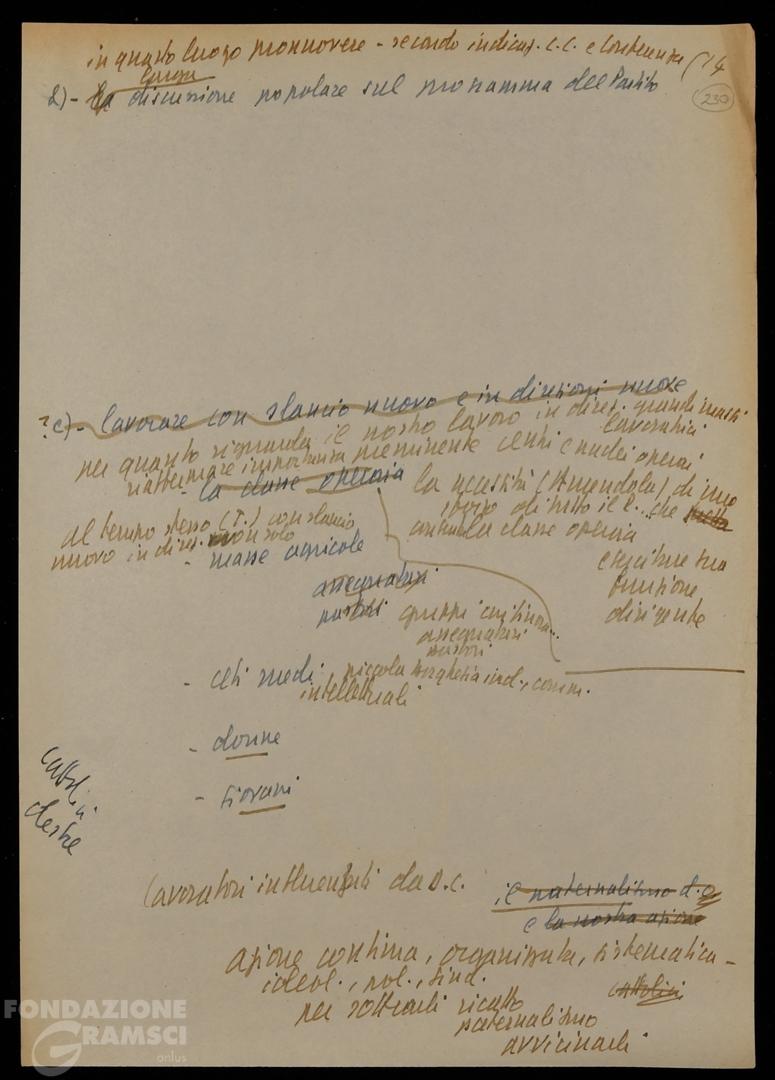 in questo luogo promuovere - secondo indicaz. C.C. e Conferenza (14
larga
2) - la discussione popolare sul programma del Partito
230
? c) - lavorare con slancio nuovo e in direzioni nuove
per quanto riguarda il nostro lavoro in direz. grandi masse
lavoratrici
riaffermare importanza preminente centri e nuclei operai
- la classe operaia
la necessità (Amendola) di uno
sforzo di tutto il P. che
la classe operaia
eserciti sua
funzione
dirigente
al tempo stesso (T.) con slancio
nuovo in direz. non solo
- masse agricole
assegnatari
pastori
gruppi contin...
assegnatari
pastori
- ceti medi piccola borghesia ind., comm.
intellettuali
- donne
- giovani
cattolici
destre
Lavoratori influenzati da D.C.
il paternalismo d.c.
e la nostra azione
azione continua, organizzata, sistematica -
ideol., pol., sind.
cattolici
per sottrarli ricatto
paternalismo
avvicinarli
FONDAZIONE
GRAMSCI
onlus